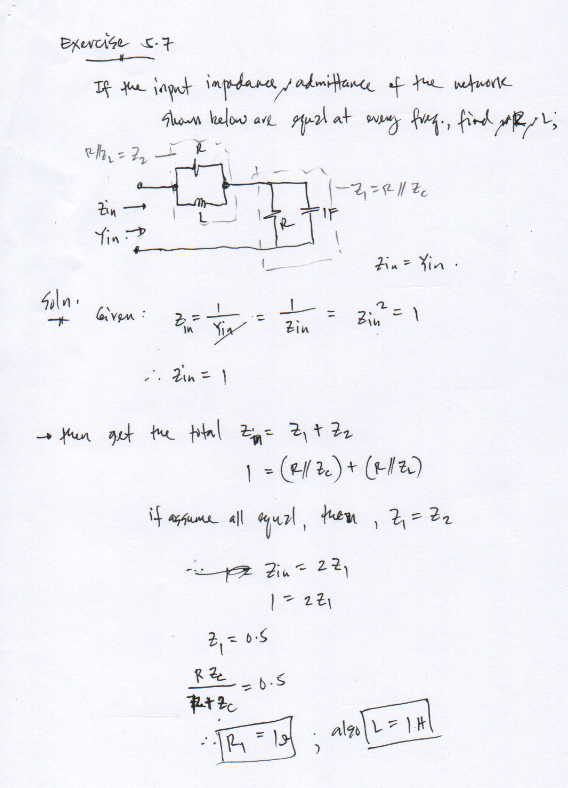 Exercise 5.7
If the input impedance, admittance of the network
shown below are equal at every freq., find R, L;
R//ZL = Z2
R
L
Zin →
Yin →
R
1F
Z1 = R // Zc
Zin = Yin.
Soln.
Given: Zin = 1/Yin = 1/Zin = Zin² = 1
∴ Zin = 1
→ then get the total Zin = Z1 + Z2
1 = (R//Zc) + (R//ZL)
if assume all equal, then, Z1 = Z2
∴ Zin = 2Z1
1 = 2Z1
Z1 = 0.5
R Zc / R + Zc = 0.5
∴ R1 = 1Ω ; also L = 1H